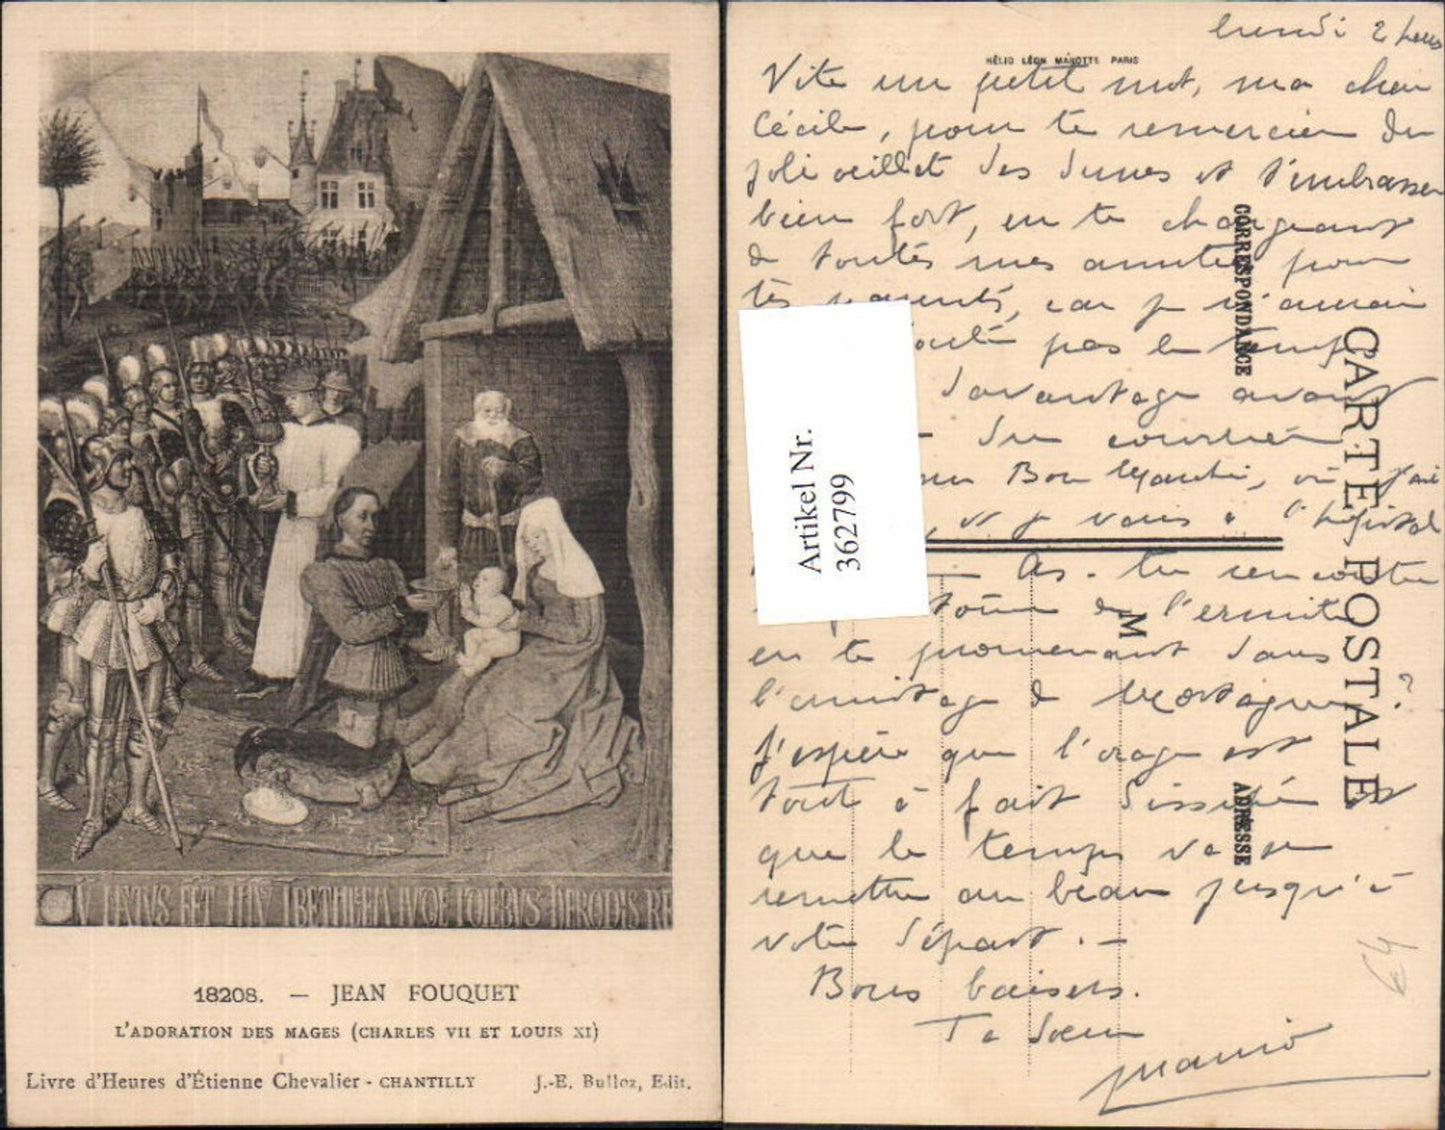 V NATUS EET
BETHLEEM
HERODIS RE
18208. — JEAN FOUQUET
L'ADORATION DES MAGES (CHARLES VII ET LOUIS XI)
Livre d'Heures d'Étienne Chevalier - CHANTILLY
J.-E. Bulloz, Edit.
lundi 2 heures
HÉLIO LÉON MAROTTE PARIS
Vite un petit mot, ma chère
Cécile, pour te remercier du
joli oeillet des dunes et t'embrasser
bien fort, en te chargeant
de toutes mes amitiés pour
tes parents, car je n'aurai
pas le temps
davantage avant
du courrier
Bon
et je vais à l'hôpital
As-tu rencontré
de l'ermite
en te promenant dans
l'ermitage de Mortagne ?
J'espère que l'orage est
tout à fait dissipé et
que le temps va se
remettre au beau jusqu'à
votre départ. —
Bons baisers.
Ta soeur
CORRESPONDANCE
CARTE POSTALE
ADRESSE
M
Artikel Nr.
362799